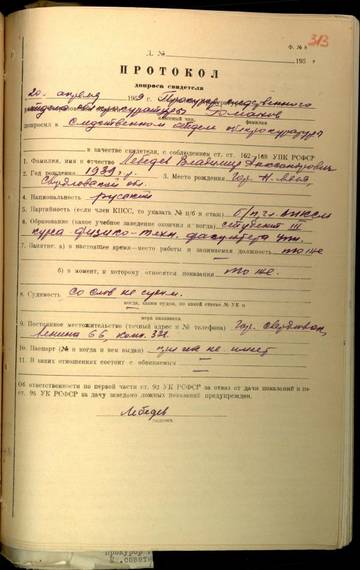 Ф. № 8
313
Л. №
195 г
ПРОТОКОЛ
допроса свидетеля
20. апреля 1959 г. Прокурор следственного
отдела облпрокуратуры Романов
классный чин, фамилия
допросил в Следственном отделе облпрокуратуры
в качестве свидетеля, с соблюдением ст. ст. 162—168 УПК РСФСР
1. Фамилия, имя и отчество Лебедев Владимир Александрович
2. Год рождения 1939 г. 3. Место рождения гор. Н. Ляля,
Свердловской обл.
4. Национальность русский
5. Партийность (если член КПСС, то указать № п/б и стаж) б/п, чл. ВЛКСМ
6. Образование (какое учебное заведение окончил и когда) студент III
курса физико-техн. факультета УПИ
7. Занятие: а) в настоящее время—место работы и занимаемая должность то же
б) в момент, к которому относятся показания то же.
8. Судимость Со слов не судим.
когда, каким судом, по какой статье УК и
мера наказания
9. Постоянное местожительство (точный адрес и № телефона) Гор. Свердловск,
Ленина 66, комн. 321
10. Паспорт (№ и когда и кем выдан) при себе не имеет
11. В каких отношениях состоит с обвиняемым —
Об ответственности по первой части ст. 92 УК РСФСР за отказ от дачи показаний и по
ст. 95 УК РСФСР за дачу заведомо ложных показаний предупрежден.
Лебедев
подпись
прокурор